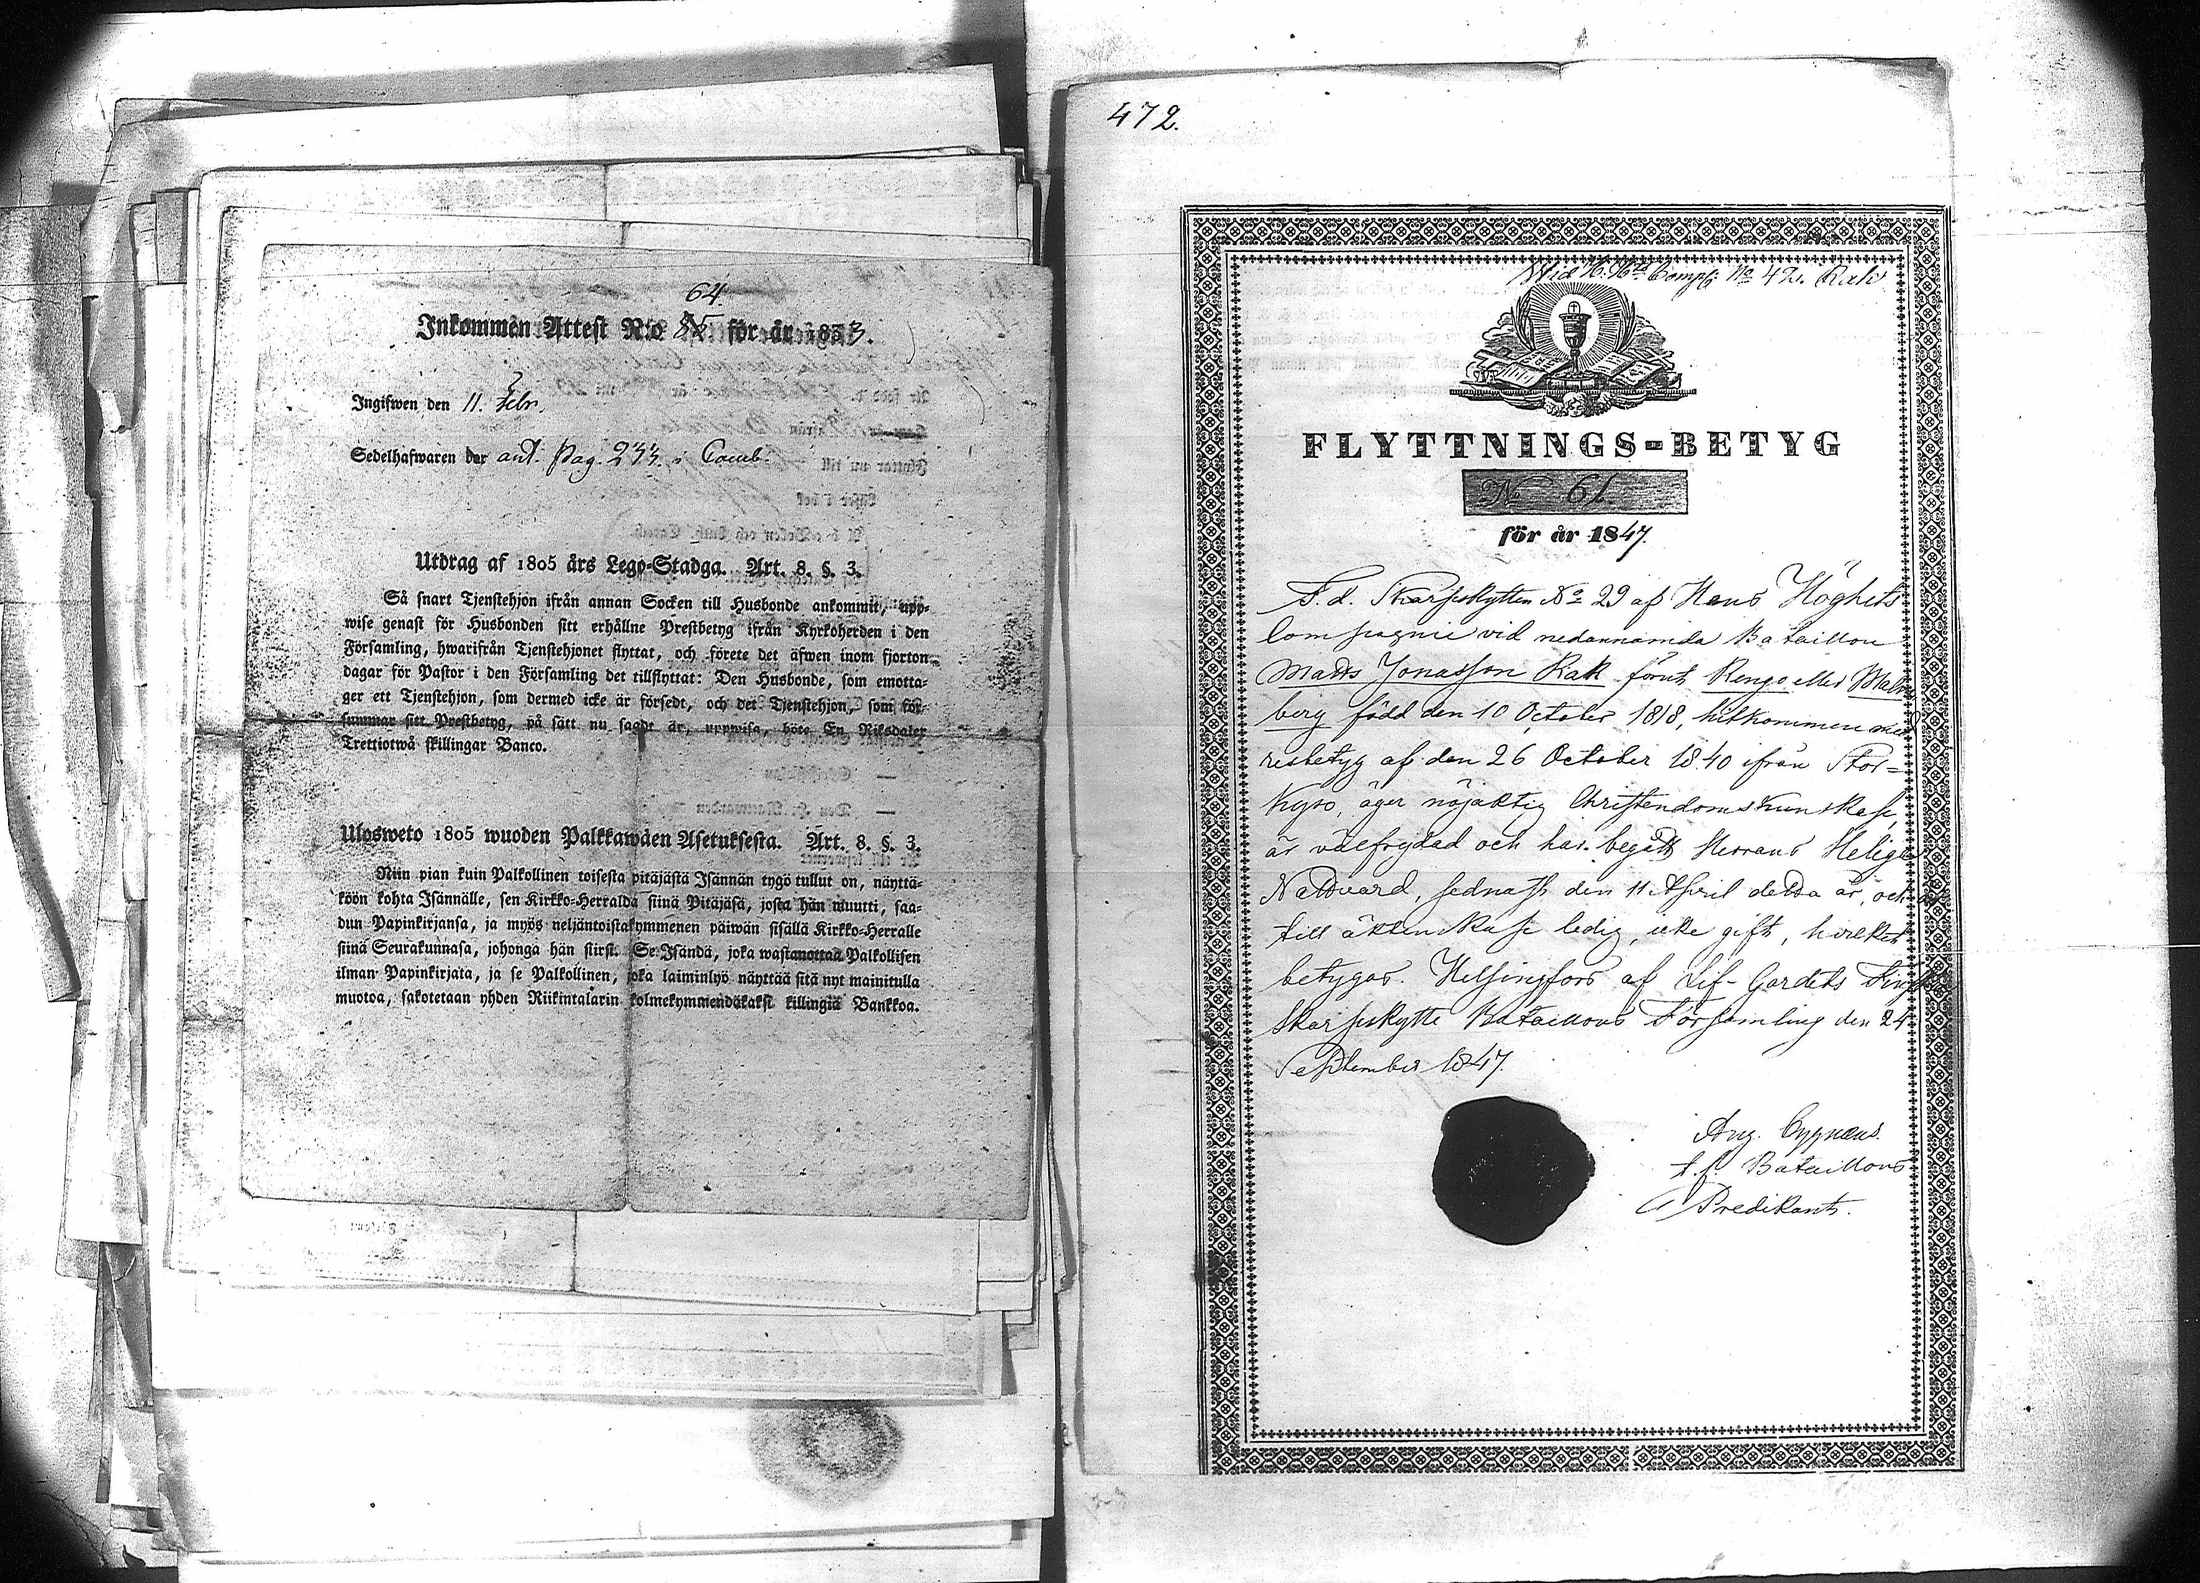 64.
Inkommen Attest N:o 55 för år 1833.
Ingifwen den 11. Febr.
Sedelhafwaren bor ant. Pag. 244. i Comb.
Utdrag af 1805 års Lego-Stadga. Art. 8. §. 3.
Så snart Tjenstehjon ifrån annan Socken till Husbonde ankommit, upp-
wise genast för Husbonden sitt erhållne Prestbetyg ifrån Kyrkoherden i den
Församling, hwarifrån Tjenstehjonet flyttat, och förete det äfwen inom fjorton
dagar för Pastor i den Församling det tillflyttat: Den Husbonde, som emotta-
ger ett Tjenstehjon, som dermed icke är försedt, och det Tjenstehjon, som för-
summar sitt Prestbetyg, på sätt nu sagdt är, uppwisa, böte En Riksdaler
Trettiotwå skillingar Banco.
Ulosweto 1805 wuoden Palkkawäen Asetuksesta. Art. 8. §. 3.
Niin pian kuin Palkollinen toisesta pitäjästä Isännän tygö tullut on, näyttä-
köön kohta Isännälle, sen Kirkko-Herralda siinä Pitäjäsä, josta hän muutti, saa-
dun Papinkirjansa, ja myös neljäntoistakymmenen päiwän sisällä Kirkko-Herralle
siinä Seurakunnasa, johonga hän siirst. Se Isändä, joka wastanottaa Palkollisen
ilman Papinkirjata, ja se Palkollinen, joka laiminlyö näyttää sitä nyt mainitulla
muotoa, sakotetaan yhden Riikintalarin kolmekymmendäkaksi killingiä Bankkoa.
472.
Wid H. Compi No 42. Rak
FLYTTNINGS-BETYG
No 61.
för år 1847.
F. d. Skarpskytten No 29 af Hans Höghets
Compagnie vid nedannämda Bataillon
Matts Jonasson Rak förut Rengo eller Malm
berg född den 10 October 1818, hitkommen med
resbetyg af den 26 October 1840 ifrån Stor-
kyro, äger nöjaktig Christendomskunskap,
är välfrejdad och har begått Herrans Heliga
Nattvard, sednast den 11 April detta år, och är
till äktenskap ledig, icke gift, hvilket
betygas. Helsingfors af Lif-Gardets Finska
Skarpskytte Bataillons Församling den 24
September 1847.
Aug. Cygnæus.
t.f. Bataillons
Predikant.